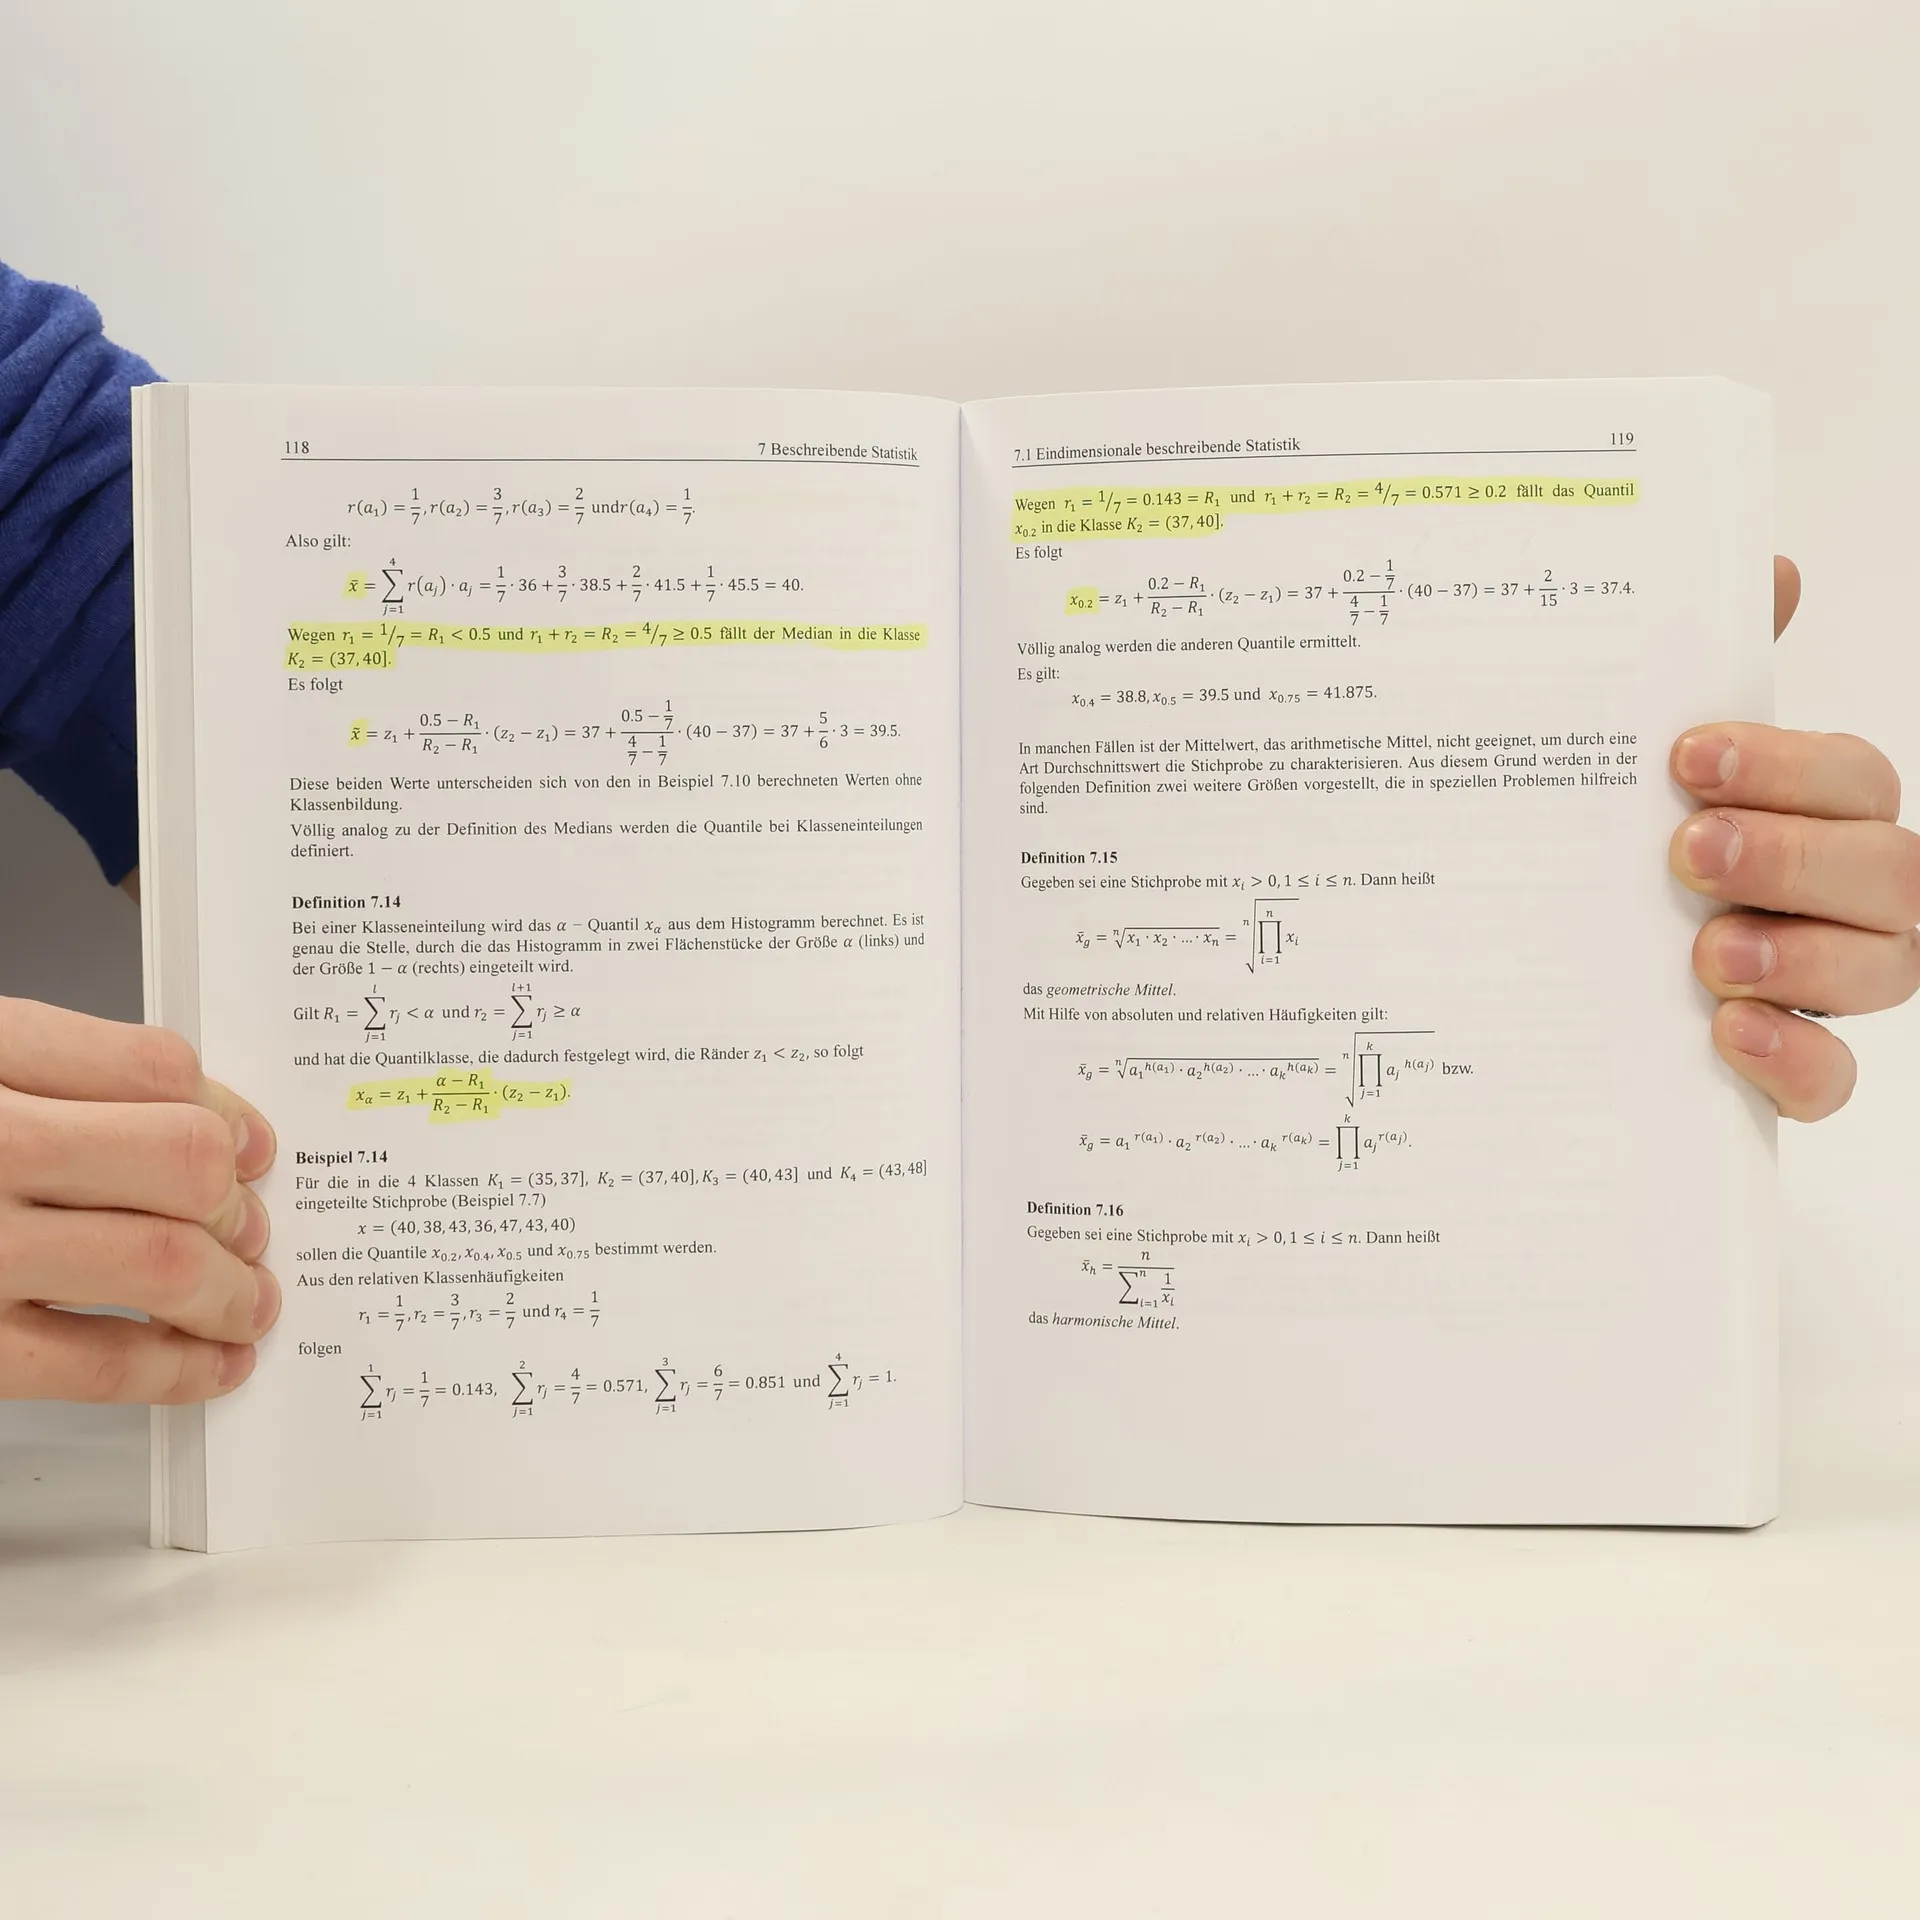 118 7 Beschreibende Statistik
r(a₁) = 1/7, r(a₂) = 3/7, r(a₃) = 2/7 undr(a₄) = 1/7.
Also gilt:
x̄ = ∑_{j=1}^{4} r(aⱼ) · aⱼ = 1/7 · 36 + 3/7 · 38.5 + 2/7 · 41.5 + 1/7 · 45.5 = 40.
Wegen r₁ = 1/7 = R₁ < 0.5 und r₁ + r₂ = R₂ = 4/7 ≥ 0.5 fällt der Median in die Klasse
K₂ = (37, 40].
Es folgt
x̃ = z₁ + (0.5 − R₁)/(R₂ − R₁) · (z₂ − z₁) = 37 + (0.5 − 1/7)/(4/7 − 1/7) · (40 − 37) = 37 + 5/6 · 3 = 39.5.
Diese beiden Werte unterscheiden sich von den in Beispiel 7.10 berechneten Werten ohne
Klassenbildung.
Völlig analog zu der Definition des Medians werden die Quantile bei Klasseneinteilungen
definiert.
Definition 7.14
Bei einer Klasseneinteilung wird das α − Quantil x_α aus dem Histogramm berechnet. Es ist
genau die Stelle, durch die das Histogramm in zwei Flächenstücke der Größe α (links) und
der Größe 1 − α (rechts) eingeteilt wird.
Gilt R₁ = ∑_{j=1}^{l} rⱼ < α und r₂ = ∑_{j=1}^{l+1} rⱼ ≥ α
und hat die Quantilklasse, die dadurch festgelegt wird, die Ränder z₁ < z₂, so folgt
x_α = z₁ + (α − R₁)/(R₂ − R₁) · (z₂ − z₁).
Beispiel 7.14
Für die in die 4 Klassen K₁ = (35, 37], K₂ = (37, 40], K₃ = (40, 43] und K₄ = (43, 48]
eingeteilte Stichprobe (Beispiel 7.7)
x = (40, 38, 43, 36, 47, 43, 40)
sollen die Quantile x_{0.2}, x_{0.4}, x_{0.5} und x_{0.75} bestimmt werden.
Aus den relativen Klassenhäufigkeiten
r₁ = 1/7, r₂ = 3/7, r₃ = 2/7 und r₄ = 1/7
folgen
∑_{j=1}^{1} rⱼ = 1/7 = 0.143, ∑_{j=1}^{2} rⱼ = 4/7 = 0.571, ∑_{j=1}^{3} rⱼ = 6/7 = 0.851 und ∑_{j=1}^{4} rⱼ = 1.
7.1 Eindimensionale beschreibende Statistik 119
Wegen r₁ = 1/7 = 0.143 = R₁ und r₁ + r₂ = R₂ = 4/7 = 0.571 ≥ 0.2 fällt das Quantil
x_{0.2} in die Klasse K₂ = (37, 40].
Es folgt
x_{0.2} = z₁ + (0.2 − R₁)/(R₂ − R₁) · (z₂ − z₁) = 37 + (0.2 − 1/7)/(4/7 − 1/7) · (40 − 37) = 37 + 2/15 · 3 = 37.4.
Völlig analog werden die anderen Quantile ermittelt.
Es gilt:
x_{0.4} = 38.8, x_{0.5} = 39.5 und x_{0.75} = 41.875.
In manchen Fällen ist der Mittelwert, das arithmetische Mittel, nicht geeignet, um durch eine
Art Durchschnittswert die Stichprobe zu charakterisieren. Aus diesem Grund werden in der
folgenden Definition zwei weitere Größen vorgestellt, die in speziellen Problemen hilfreich
sind.
Definition 7.15
Gegeben sei eine Stichprobe mit xᵢ > 0, 1 ≤ i ≤ n. Dann heißt
x̄_g = ⁿ√(x₁ · x₂ · … · xₙ) = ⁿ√(∏_{i=1}^{n} xᵢ)
das geometrische Mittel.
Mit Hilfe von absoluten und relativen Häufigkeiten gilt:
x̄_g = ⁿ√(a₁^{h(a₁)} · a₂^{h(a₂)} · … · a_k^{h(a_k)}) = ⁿ√(∏_{j=1}^{k} aⱼ^{h(aⱼ)}) bzw.
x̄_g = a₁^{r(a₁)} · a₂^{r(a₂)} · … · a_k^{r(a_k)} = ∏_{j=1}^{k} aⱼ^{r(aⱼ)}.
Definition 7.16
Gegeben sei eine Stichprobe mit xᵢ > 0, 1 ≤ i ≤ n. Dann heißt
x̄_h = n/(∑_{i=1}^{n} 1/xᵢ)
das harmonische Mittel.